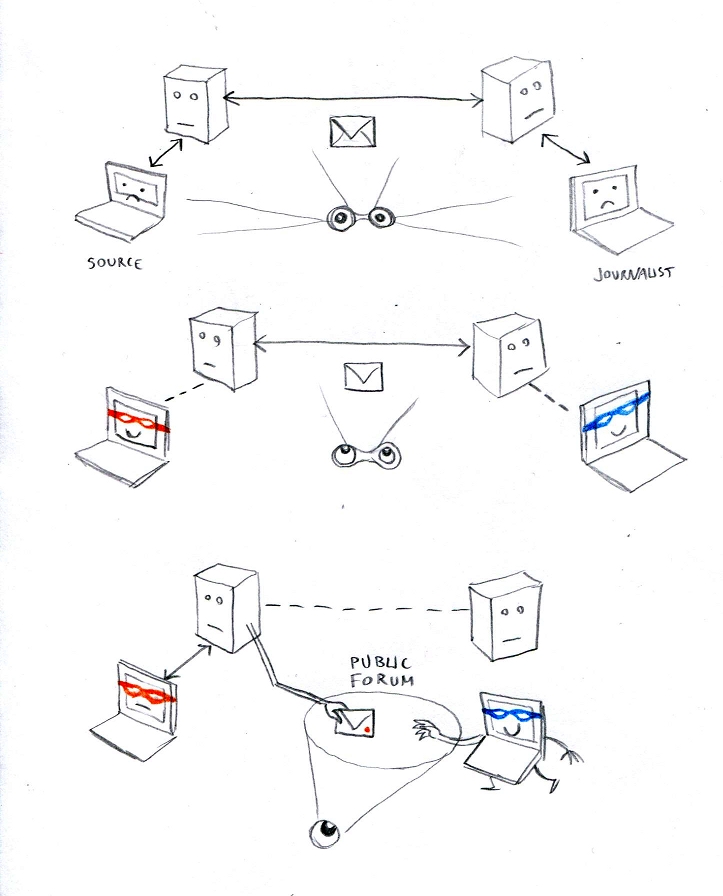 SOURCE
JOURNALIST
PUBLIC
FORUM